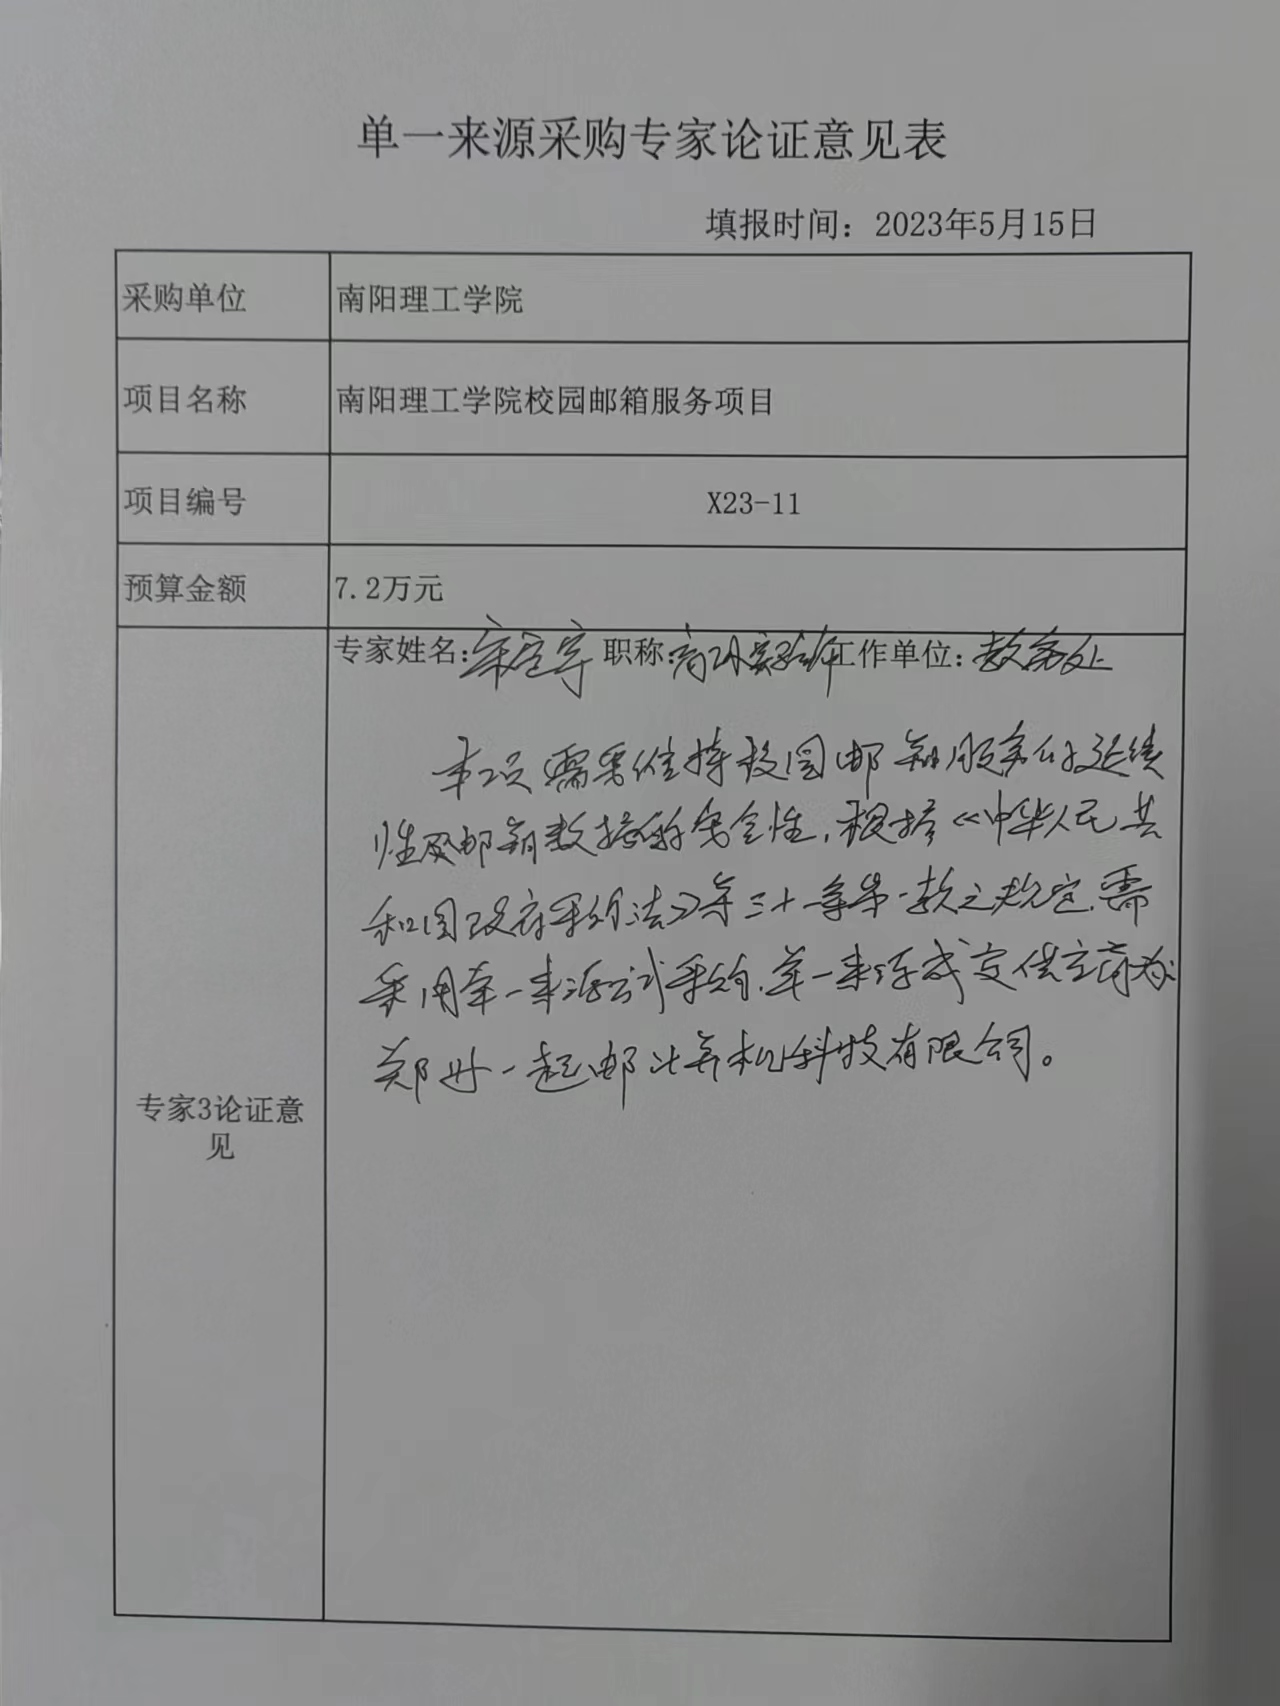 单一来源采购专家论证意见表
填报时间：2023年5月15日
采购单位 南阳理工学院
项目名称 南阳理工学院校园邮箱服务项目
项目编号 X23-11
预算金额 7.2万元
专家姓名： 职称：高级实验师 工作单位：教务处
本项 需要维持校园邮箱服务的延续
性及邮箱数据的安全性，根据《中华人民共
和国政府采购法》第三十一条第一款之规定，需
采用单一来源方式采购，单一来源成交供应商为
郑州一起邮计算机科技有限公司。
专家3论证意
见